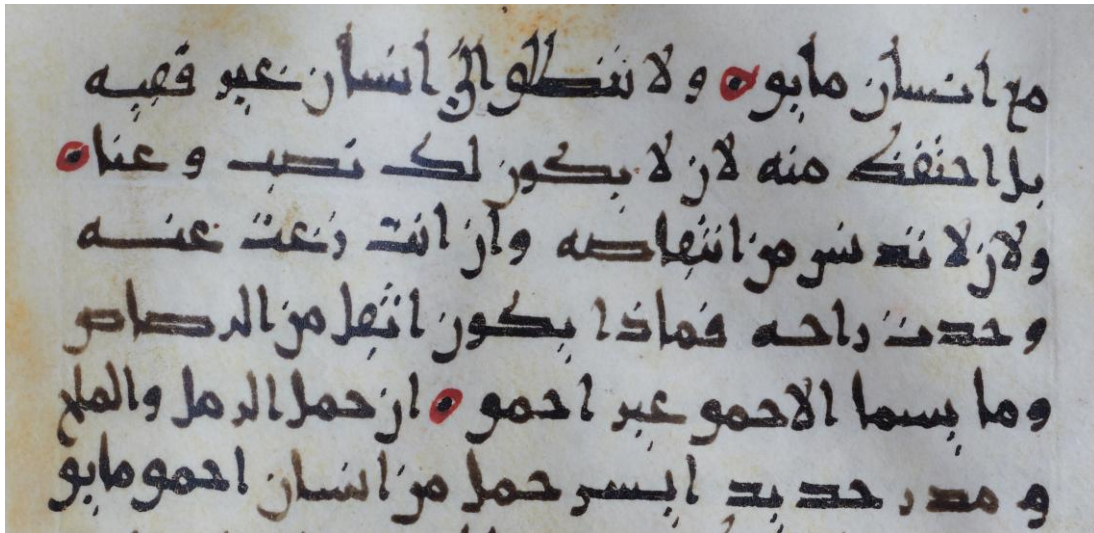 مع انسان مايق ولا تنطلق الى انسان غير فقيه
بل احتفظ منه لان لا يكون لك نصب وعنا
ولان لا تدنس من انتفاضه وان انت زغت عنه
وجدت راحه فماذا يكون اثقل من الرصاص
وما يسما الاحمق غير احمق ان حمل الرمل والملح
ومدر حديد ايسر حمل من انسان احمق مايق